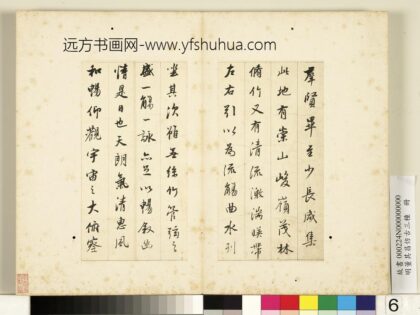 远方书画网-www.yfshuhua.com
羣賢畢至少長咸集
此地有崇山峻嶺茂林
脩竹又有清流激湍暎帶
左右引以為流觴曲水列
坐其次雖無絲竹管弦之
盛一觴一詠亦足以暢敘幽
情是日也天朗氣清惠風
和暢仰觀宇宙之大俯察
故書000224N000000000
明董其昌仿古三種 冊
6